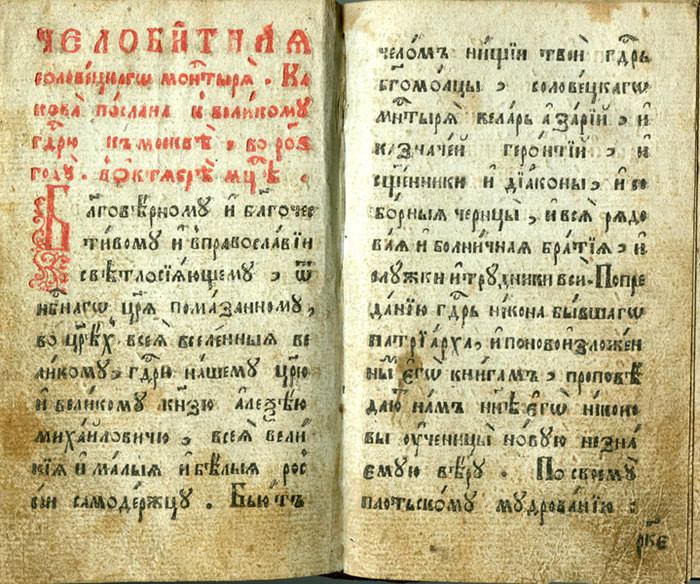 ЧЕЛОБИ́ТНАЯ
соловецкагѡ монⷭ҇тырѧ̀. Ка
кова̀ по́слана к̾ вели́кому
гдⷭ҇рю къ москвѣ̀, во роѕ҃
годꙋ̀. в̾ октѧбрѣ̀ мц҇ѣ.
Бл҃говѣ́рному и҆ бл҃гочес
ти́вому и҆ в̾ правосла́вїи
свѣтлосїѧ́ющему, ѿ
нб҃нагѡ цр҃ѧ̀ пома́занному,
во цр҃ѣ́хъ всеѧ̀ вселе́нныѧ ве
ли́кому, гдⷭ҇рю на́шему цр҃ю
и҆ вели́кому кн҃зю а҆леѯѣ́ю
миха́иловичю, всеѧ̀ вели́
кїѧ и҆ ма́лыѧ и҆ бѣ́лыѧ рос
сїи самоде́ржцу. Бью́тъ
чело́мъ ни́щїи твоѝ гдⷭ҇рь
бг҃омо́лцы, солове́цкагѡ
мⷭ҇нтырѧ̀ ке́ларь а҆за́рїй, и҆
казначе́й геро́нтїй, и҆
сщ҃е́нники и҆ дїа́коны, и҆ со
бо́рныѧ черньцы̀, и҆ всѧ̀ рѧдо
ва́ѧ и҆ болни́чнаѧ бра́тїѧ, и҆
слу́жки и҆ тру́дники всѝ. По пре
да́нїю гдⷭ҇рь ни́кона бы́вшагѡ
патрїа́рха, и҆ по новоизложе́н
ны́мъ є҆гѡ̀ кни́гамъ, проповѣ́
даю́тъ на́мъ нн҃ѣ є҆гѡ̀ ни́коно
вы ѹ҆ченицы̀ но́вую незна́
емую вѣ́ру. По своемꙋ̀
пло́тьскому мудрова́нїю:
рк҃є